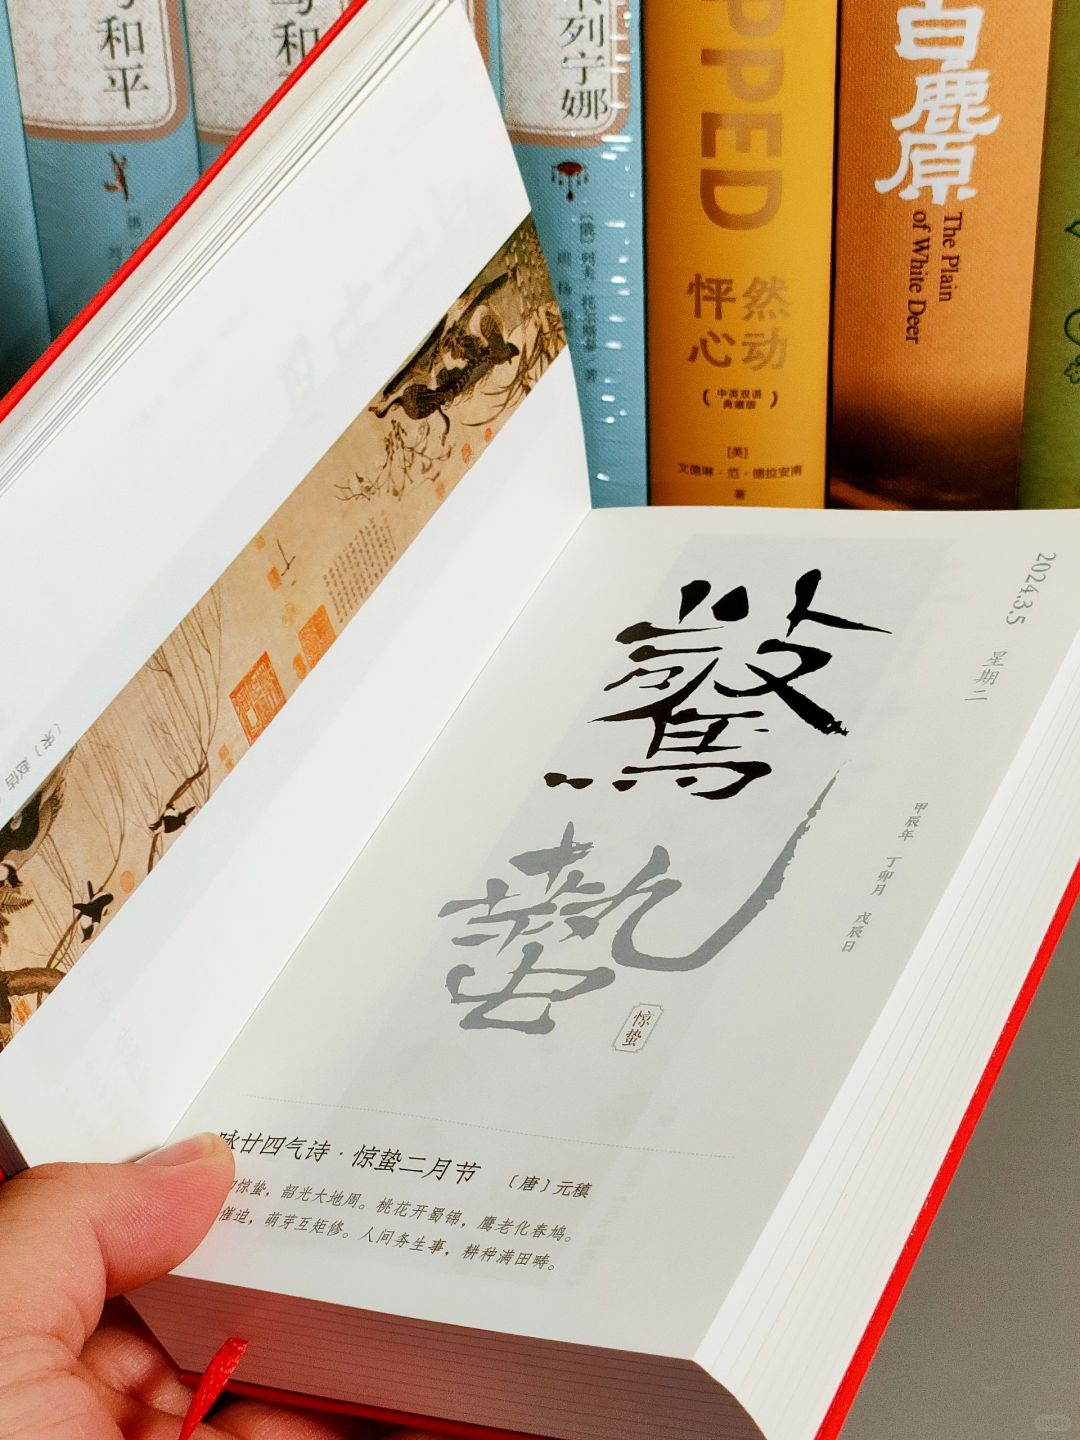 和平
和
列宁娜
PPED
怦然
心动
(中英双语
典藏版)
[美]
文德琳·范·德拉安南
著
白鹿原
The Plain
of White Deer
2024.3.5 星期二
甲辰年 丁卯月 戊辰日
驚
蟄
惊蛰
咏廿四气诗·惊蛰二月节 〔唐〕元稹
惊蛰，韶光大地周。桃花开蜀锦，鹰老化春鸠。
催迫，萌芽互矩修。人间务生事，耕种满田畴。